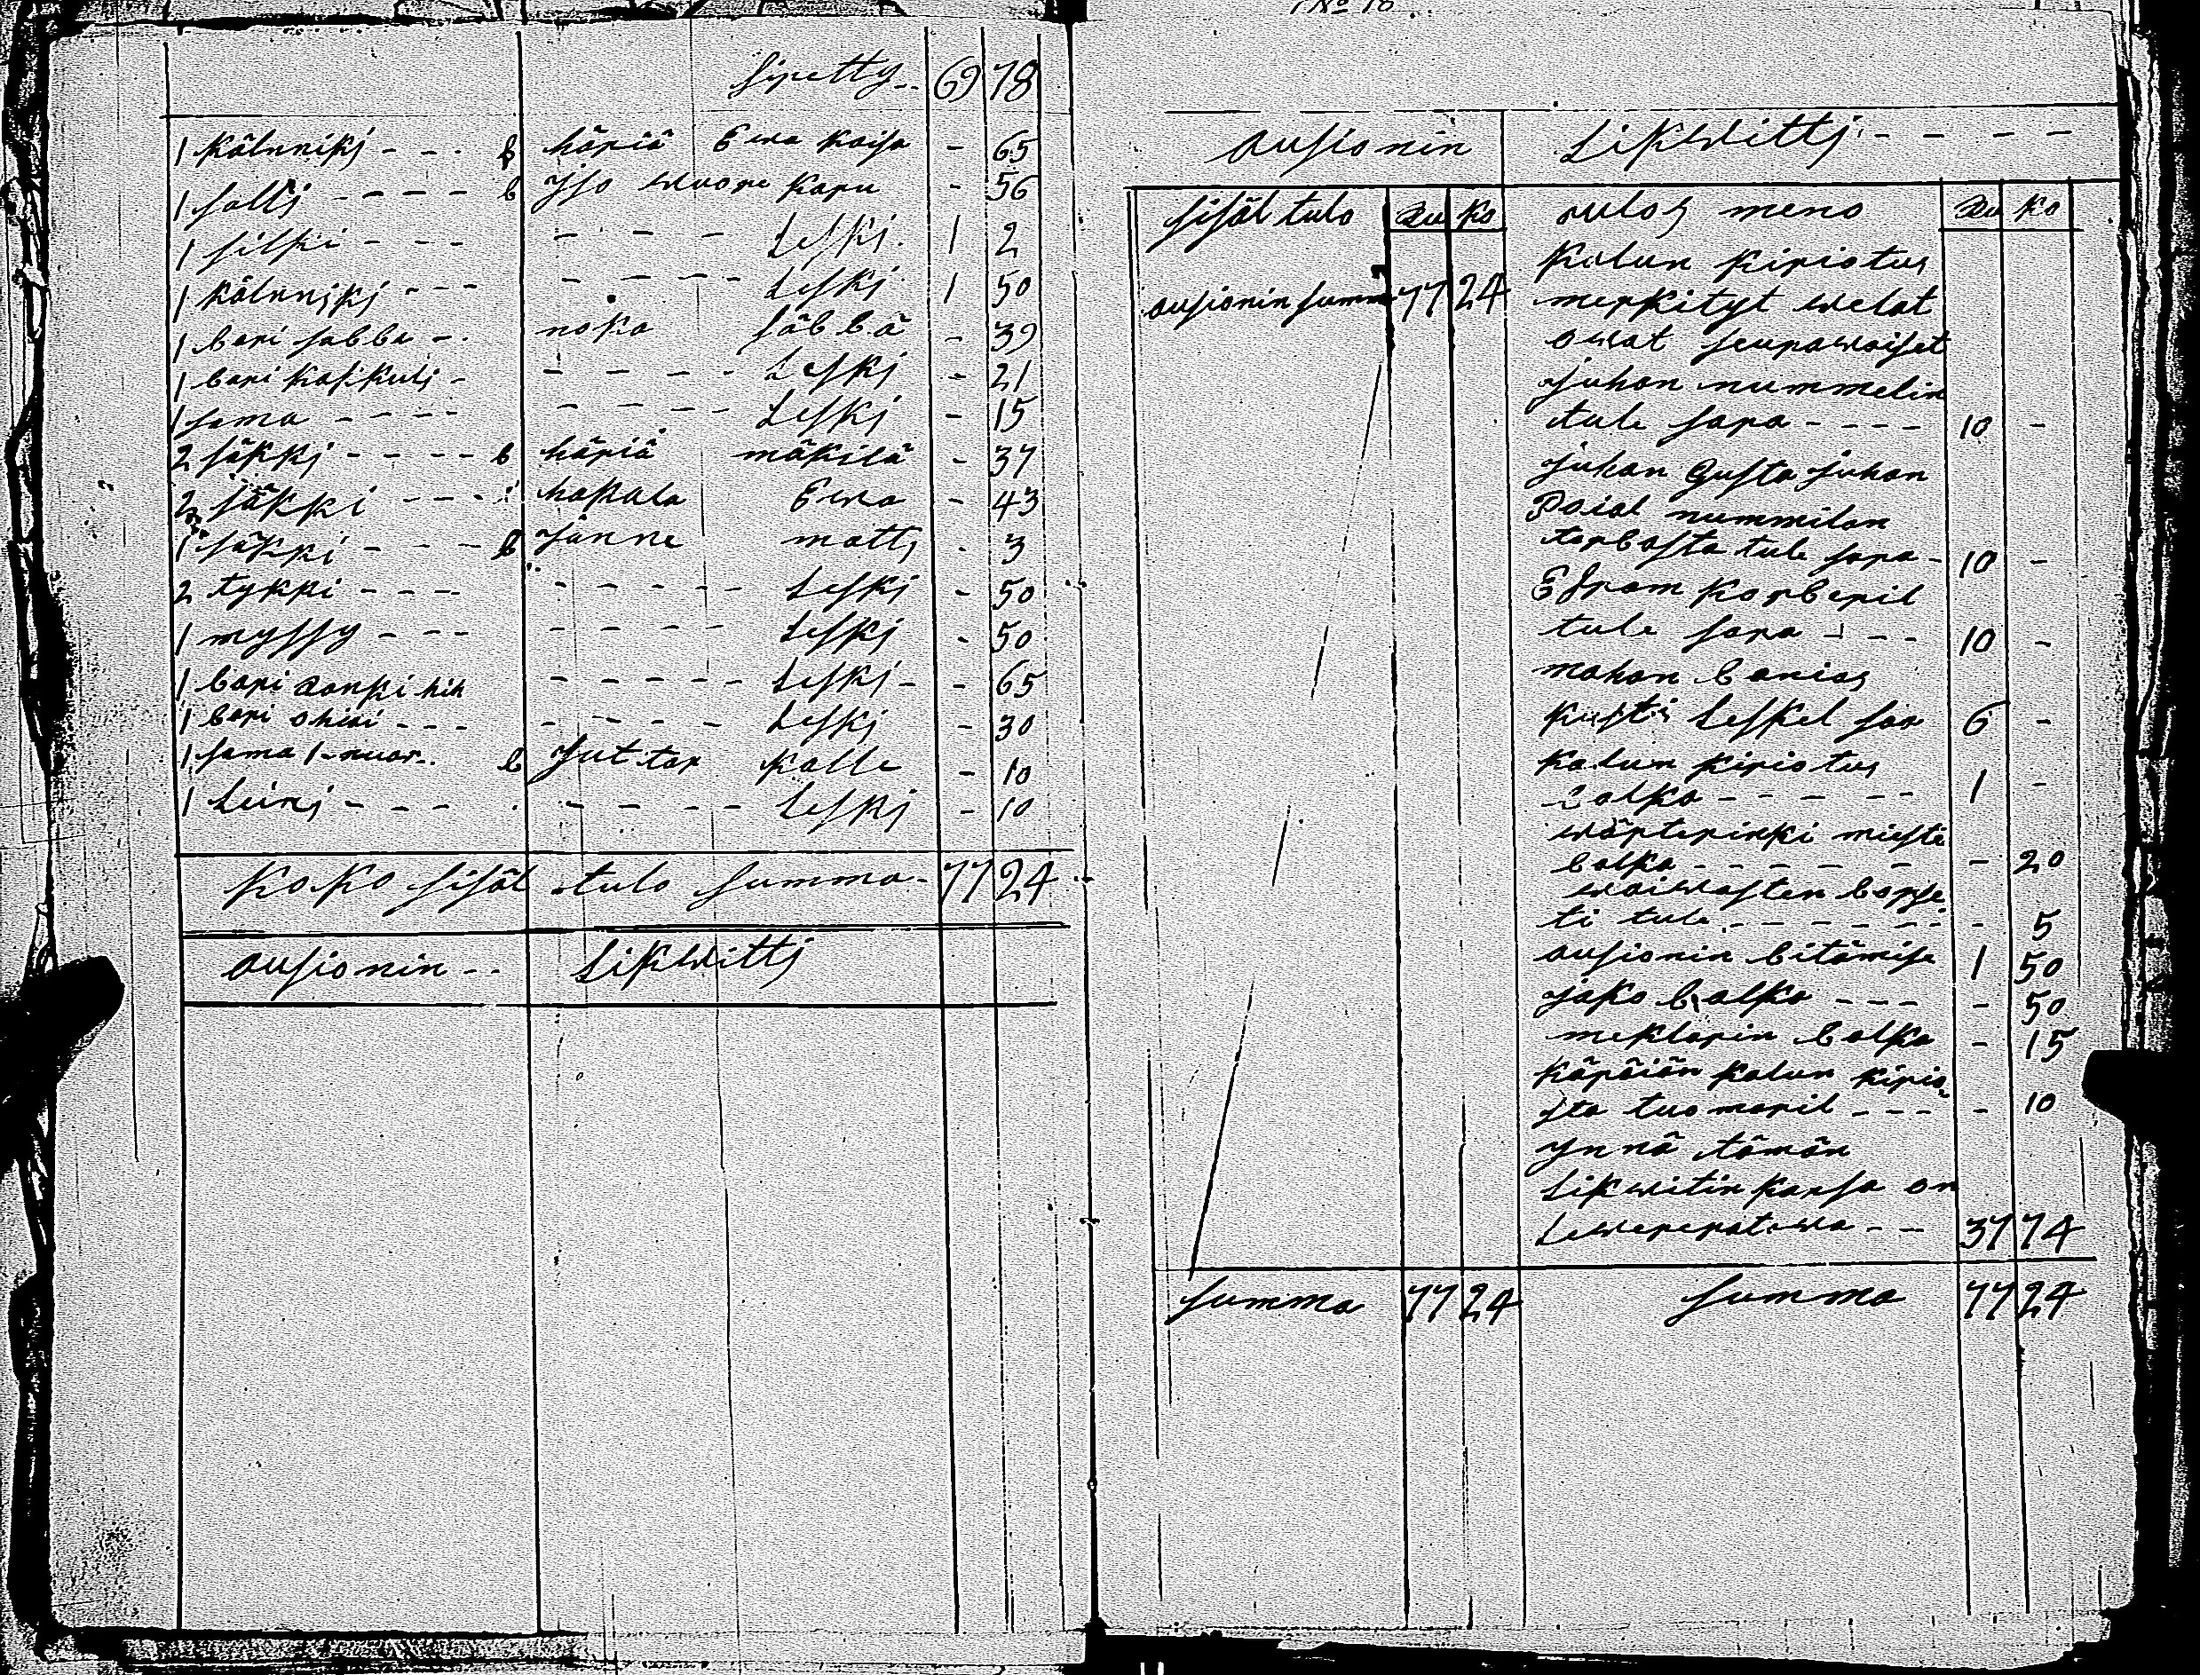 No 18
siretty -- 69 78
1 kölnniki - - - b häriä Ewa kaisa - 65
1 salli - - - - b yso wuore karu - 56
1 silki - - - - - - - - Leski 1 2
1 kölnniki - - - - - - - Leski 1 50
1 bari sabba - - noka säbbä - 39
1 bari kaskuli - - - - - - Leski - 21
1 sama - - - - - - - - Leski - 15
2 säkki - - - - b häriä mäkilä - 37
2 säkki - - - hakala Ewa - 43
1 säkki - - - b Jänne matti - 3
2 tykki - - - - - - - - - Leski - 50
1 myssy - - - - - - - - Leski - 50
1 bari aanki hih - - - - - Leski - - 65
1 bari ohiai - - - - - - - - Leski - 30
1 sama 1-nuor.. b Juttar kalle - 10
1 Leini - - - - - - - - Leski - 10
koko sisäl tulo summa - 77 24
ausionin -- Likwitti
ausionin Likwitti - - - -
sisäl tulo Ru ko ulos meno Ru ko
kalun kiriotus
ausionin summa 77 24 merkityt welat
owat seurawaiset
Juhan nummelin
tule sara - - - - 10 -
Juhan Gusta Juhan
Poial nummilan
torbasta tule sara - 10 -
Efram korberil
tule sara - - - 10 -
mahan banias
kusti Leskel saa 6 -
kalun kiriotus
balka - - - - - 1 -
wärterinki miesti
balka - - - - - - - 20
waiwasten borse
ti tule - - - - - - - 5
ausionin bitämise 1 50
jako balka - - - - 50
meklarin balka - 15
käräiän kalun kirio
sta tuomaril - - - - 10
ynnä tämän
Likwitin kansa on
Lewereratowa - - 37 74
summa 77 24 summa 77 24